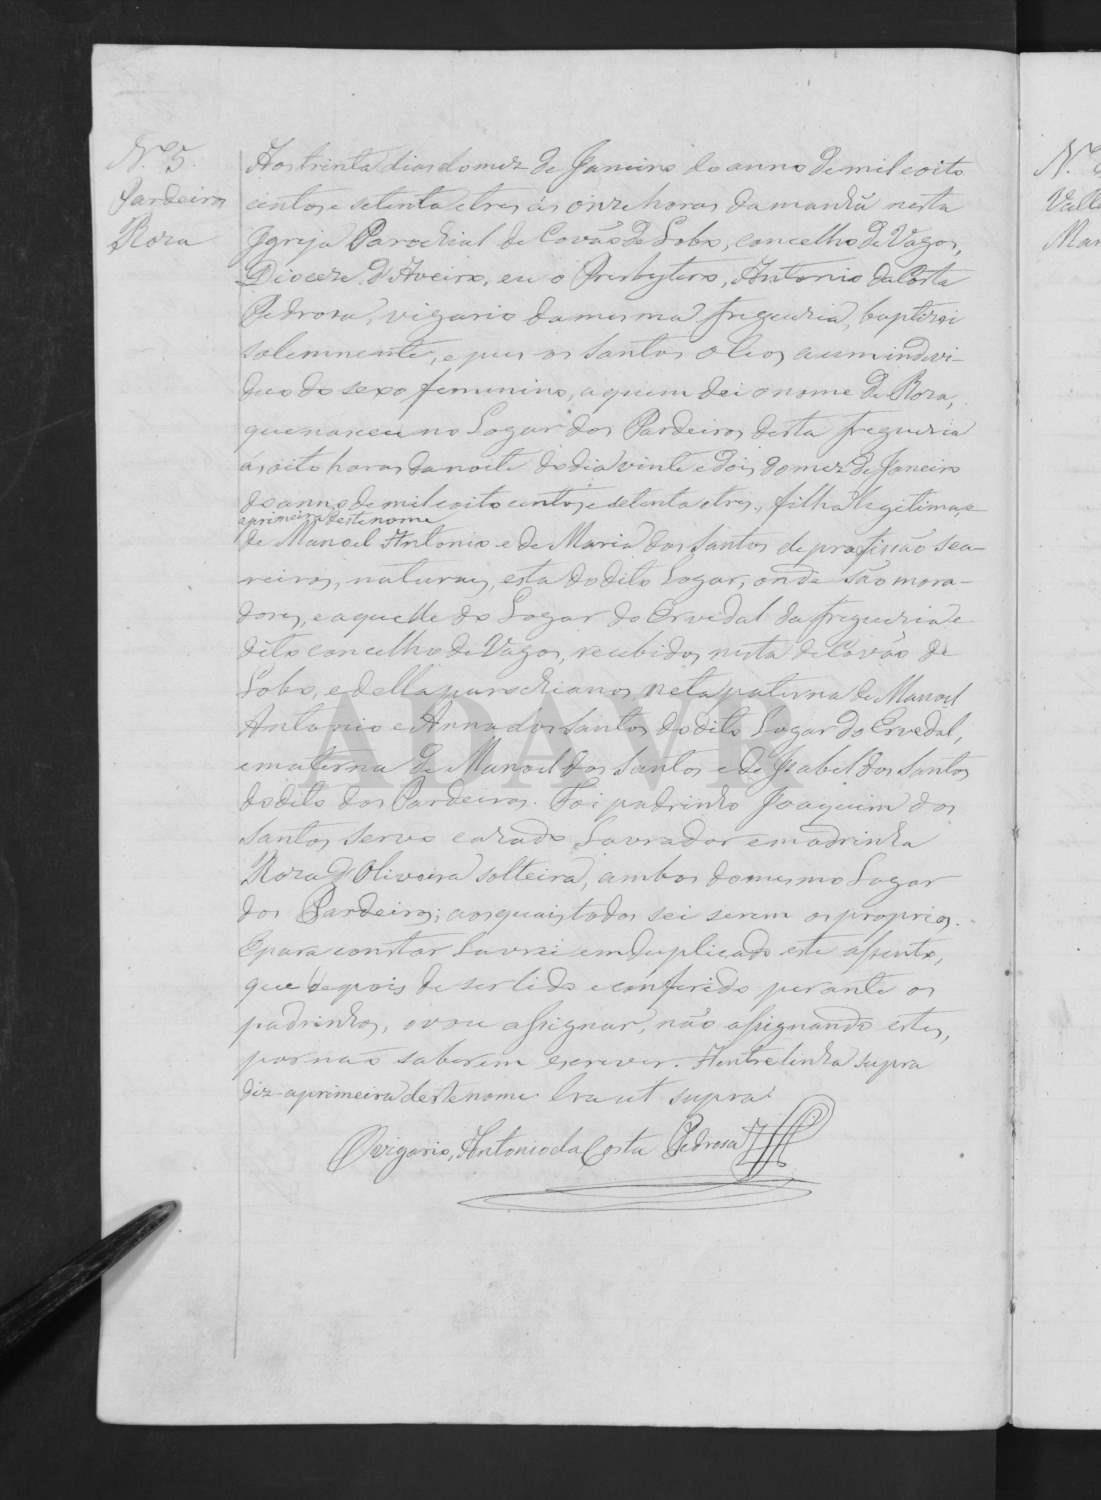 N.º 5.
Pardeiros
Roza
Aos trinta dias do mez de Janeiro do anno de mil e oito
centos e setenta e tres ás onze horas da manhã nesta
Igreja Parochial de Covão de Lobo, concelho de Vagos,
Dioceze d'Aveiro, eu o Presbytero, Antonio da Costa
Pedrosa, vigario da mesma freguezia, baptizei
solemnemente, e puz os Santos Oleos a um indevi-
duo do sexo femenino, a quem dei o nome de Roza,
que nasceu no Logar dos Pardeiros desta freguezia
ás oito horas da noite do dia vinte e dois do mez de Janeiro
do anno de mil e oito centos e setenta e tres, filha legitima, e
a primeira deste nome
de Manoel Antonio e de Maria dos Santos de profissão sea-
reiros, naturaes, esta do dito Logar, onde são mora-
dores, e aquelle do Logar do Ervedal da freguezia e
dito concelho de Vagos, recebidos nesta de Covão de
Lobo, e della parochianos neta paterna de Manoel
Antonio e Anna dos Santos do dito Logar do Ervedal,
e materna de Manoel dos Santos e de Izabel dos Santos
do dito dos Pardeiros. Foi padrinho Joaquim dos
Santos Servo cazado Lavrador e madrinha
Roza d'Oliveira solteira, ambos do mesmo Logar
dos Pardeiros; aos quais todos sei serem os proprios.
E para constar lavrei em duplicado este assento,
que depois de ser lido e conferido perante os
padrinhos, o vou assignar, não assignando estes,
por não saberem escrever. A entrelinha supra
diz - a primeira deste nome. Era ut supra
O vigario, Antonio da Costa Pedrosa
ADAVR
N.º
Valle
Mar